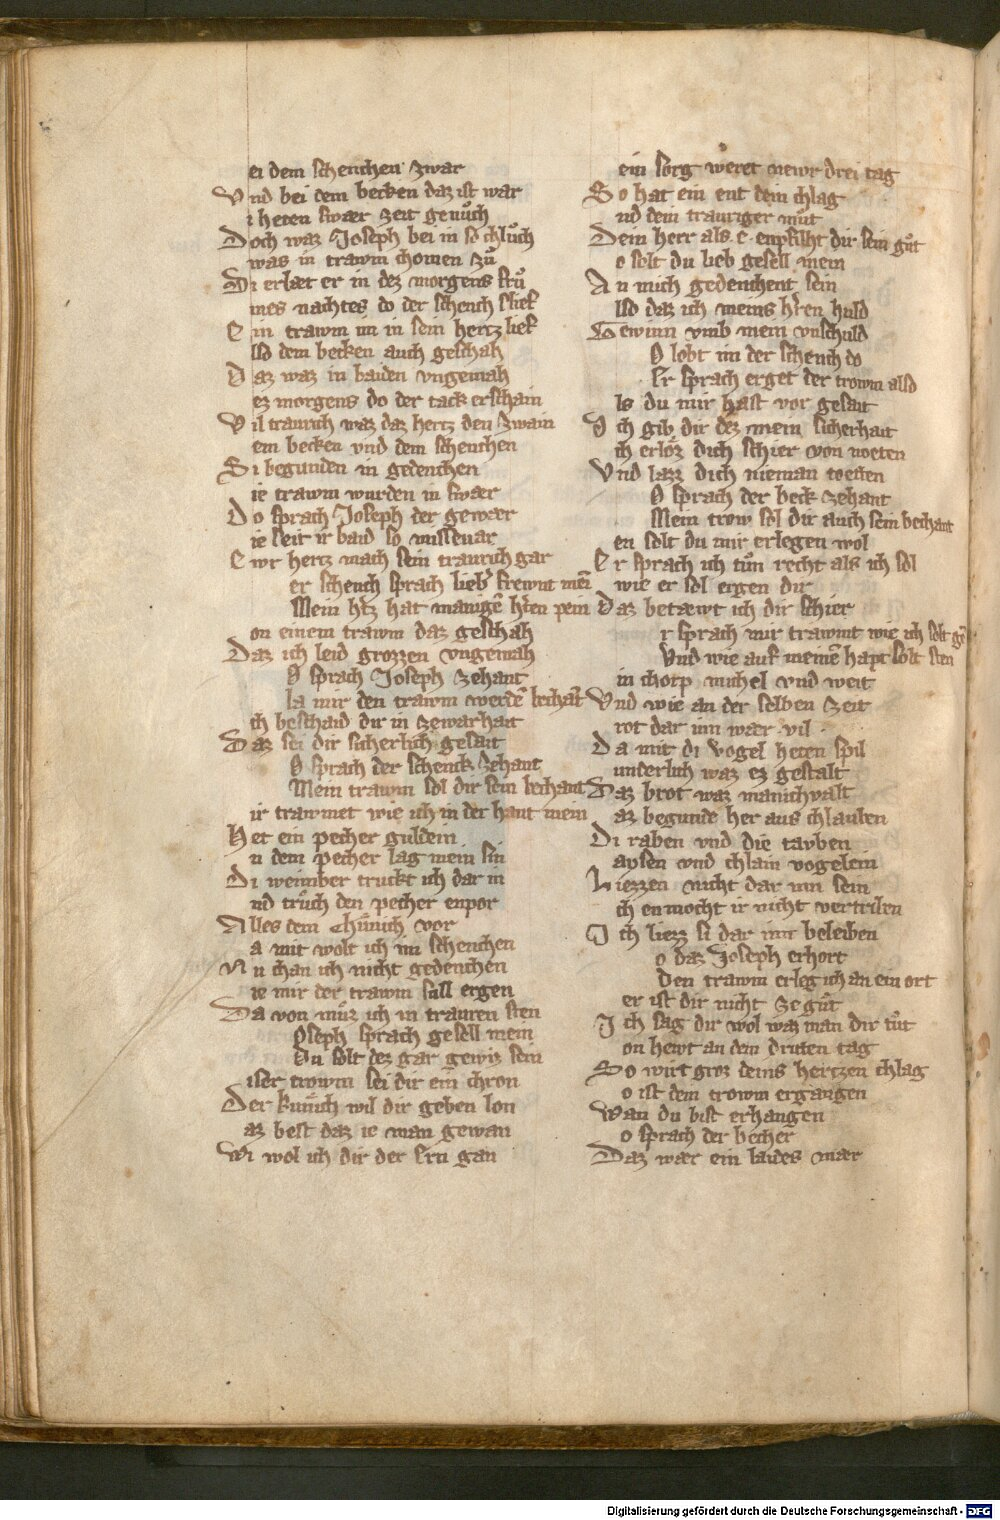 ei dem schenchen zwar
Vnd bei dem becken daz ist war
i heten swær zeit genůch
Doch waz Joseph bei in so chlůch
was in trawm chomen zů
Di erlæt er in dez morgens frů
ines nachtes do der schench slief
Ein trawm im in sein hertz lief
lso dem becken auch geschah
Daz waz in baiden vngemah
ez morgens do der tack erschain
Vil traurich waz daz hertz den zwain
em becken vnd dem schenchen
Si begunden in gedenchen
ie trawm wurden in swær
Do sprach Joseph der gewær
ie seit ir baid so missevar
Ewr hertz mach sein traurich gar
er schench sprach lieb' frewnt mei
Mein h'tz hat manigē h'ten pein
on einem trawm daz geschah
Daz ich leid grozzen vngemah
O sprach Joseph zehant
la mir den trawm werdē bechāt
ch beschaid dir in zewarhait
Daz sei dir sicherlich gesait
O sprach der schenck zehant
Mein trawm sol dir sein bechant
ir trawmet wie ich in der hant mein
Het ein pecher guldein
n dem pecher lag mein sin
Di weimber truckt ich dar in
nd trůch den pecher enpor
Alles dem chünich vor
a mit wolt ich im schenchen
Nu chan ich nicht gedenchen
ie mir der trawm sull ergen
Da von můz ich in trauren sten
Oseph sprach gesell mein
Du solt dez gar gewiz sein
iser trowm sei dir ein chron
Der kunich wil dir geben lon
az best daz ie man gewan
Wi wol ich dir der ern gan
ein sorg weret newr drei tag
So hat ein ent dein chlag
nd dem trauriger můt
Dein herr als e enpfilht dir sein gůt
o solt du lieb gesell mein
An mich gedenchent sein
lso daz ich meins h'ren huld
Gewinn vmb mein vnschuld
O lobt im der schench do
Er sprach erget der trowm also
ls du mir hast vor gesait
Ich gib dir dez mein sicherhait
ch erlöz dich schier von noeten
Vnd lazz dich nieman toeten
O sprach der beck zehant
Mein trow sol dir auch sein bechant
en solt du mir erlegen wol
Er sprach ich tůn recht als ich sol
wie er sol ergen dir
Daz betæwt ich dir schier
r sprach mir trawmt wie ich solt gē
Vnd wie auf meinē hapt solt sten
in chorp michel vnd weit
Vnd wie an der selben zeit
rot dar inn wær vil
Da mit di vogel heten spil
underlich waz ez gestalt
Daz brot waz manichvalt
az begunde her aus chlauben
Di raben vnd die tavben
aysen vnd chlain vogelein
Liezzen nicht dar inn sein
ch enmocht ir nicht vertriben
Ich liezz si dar inn beleiben
o daz Joseph erhort
Den trawm erleg ich an ein ort
er ist dir nicht ze gůt
Ich sag dir wol waz man dir tůt
on hewt an dem dritten tag
So wirt groz deins hertzen chlag
o ist dem trowm ergangen
Wan du bist erhangen
o sprach der becher
Daz wær ein laides mær
Digitalisierung gefördert durch die Deutsche Forschungsgemeinschaft - DFG